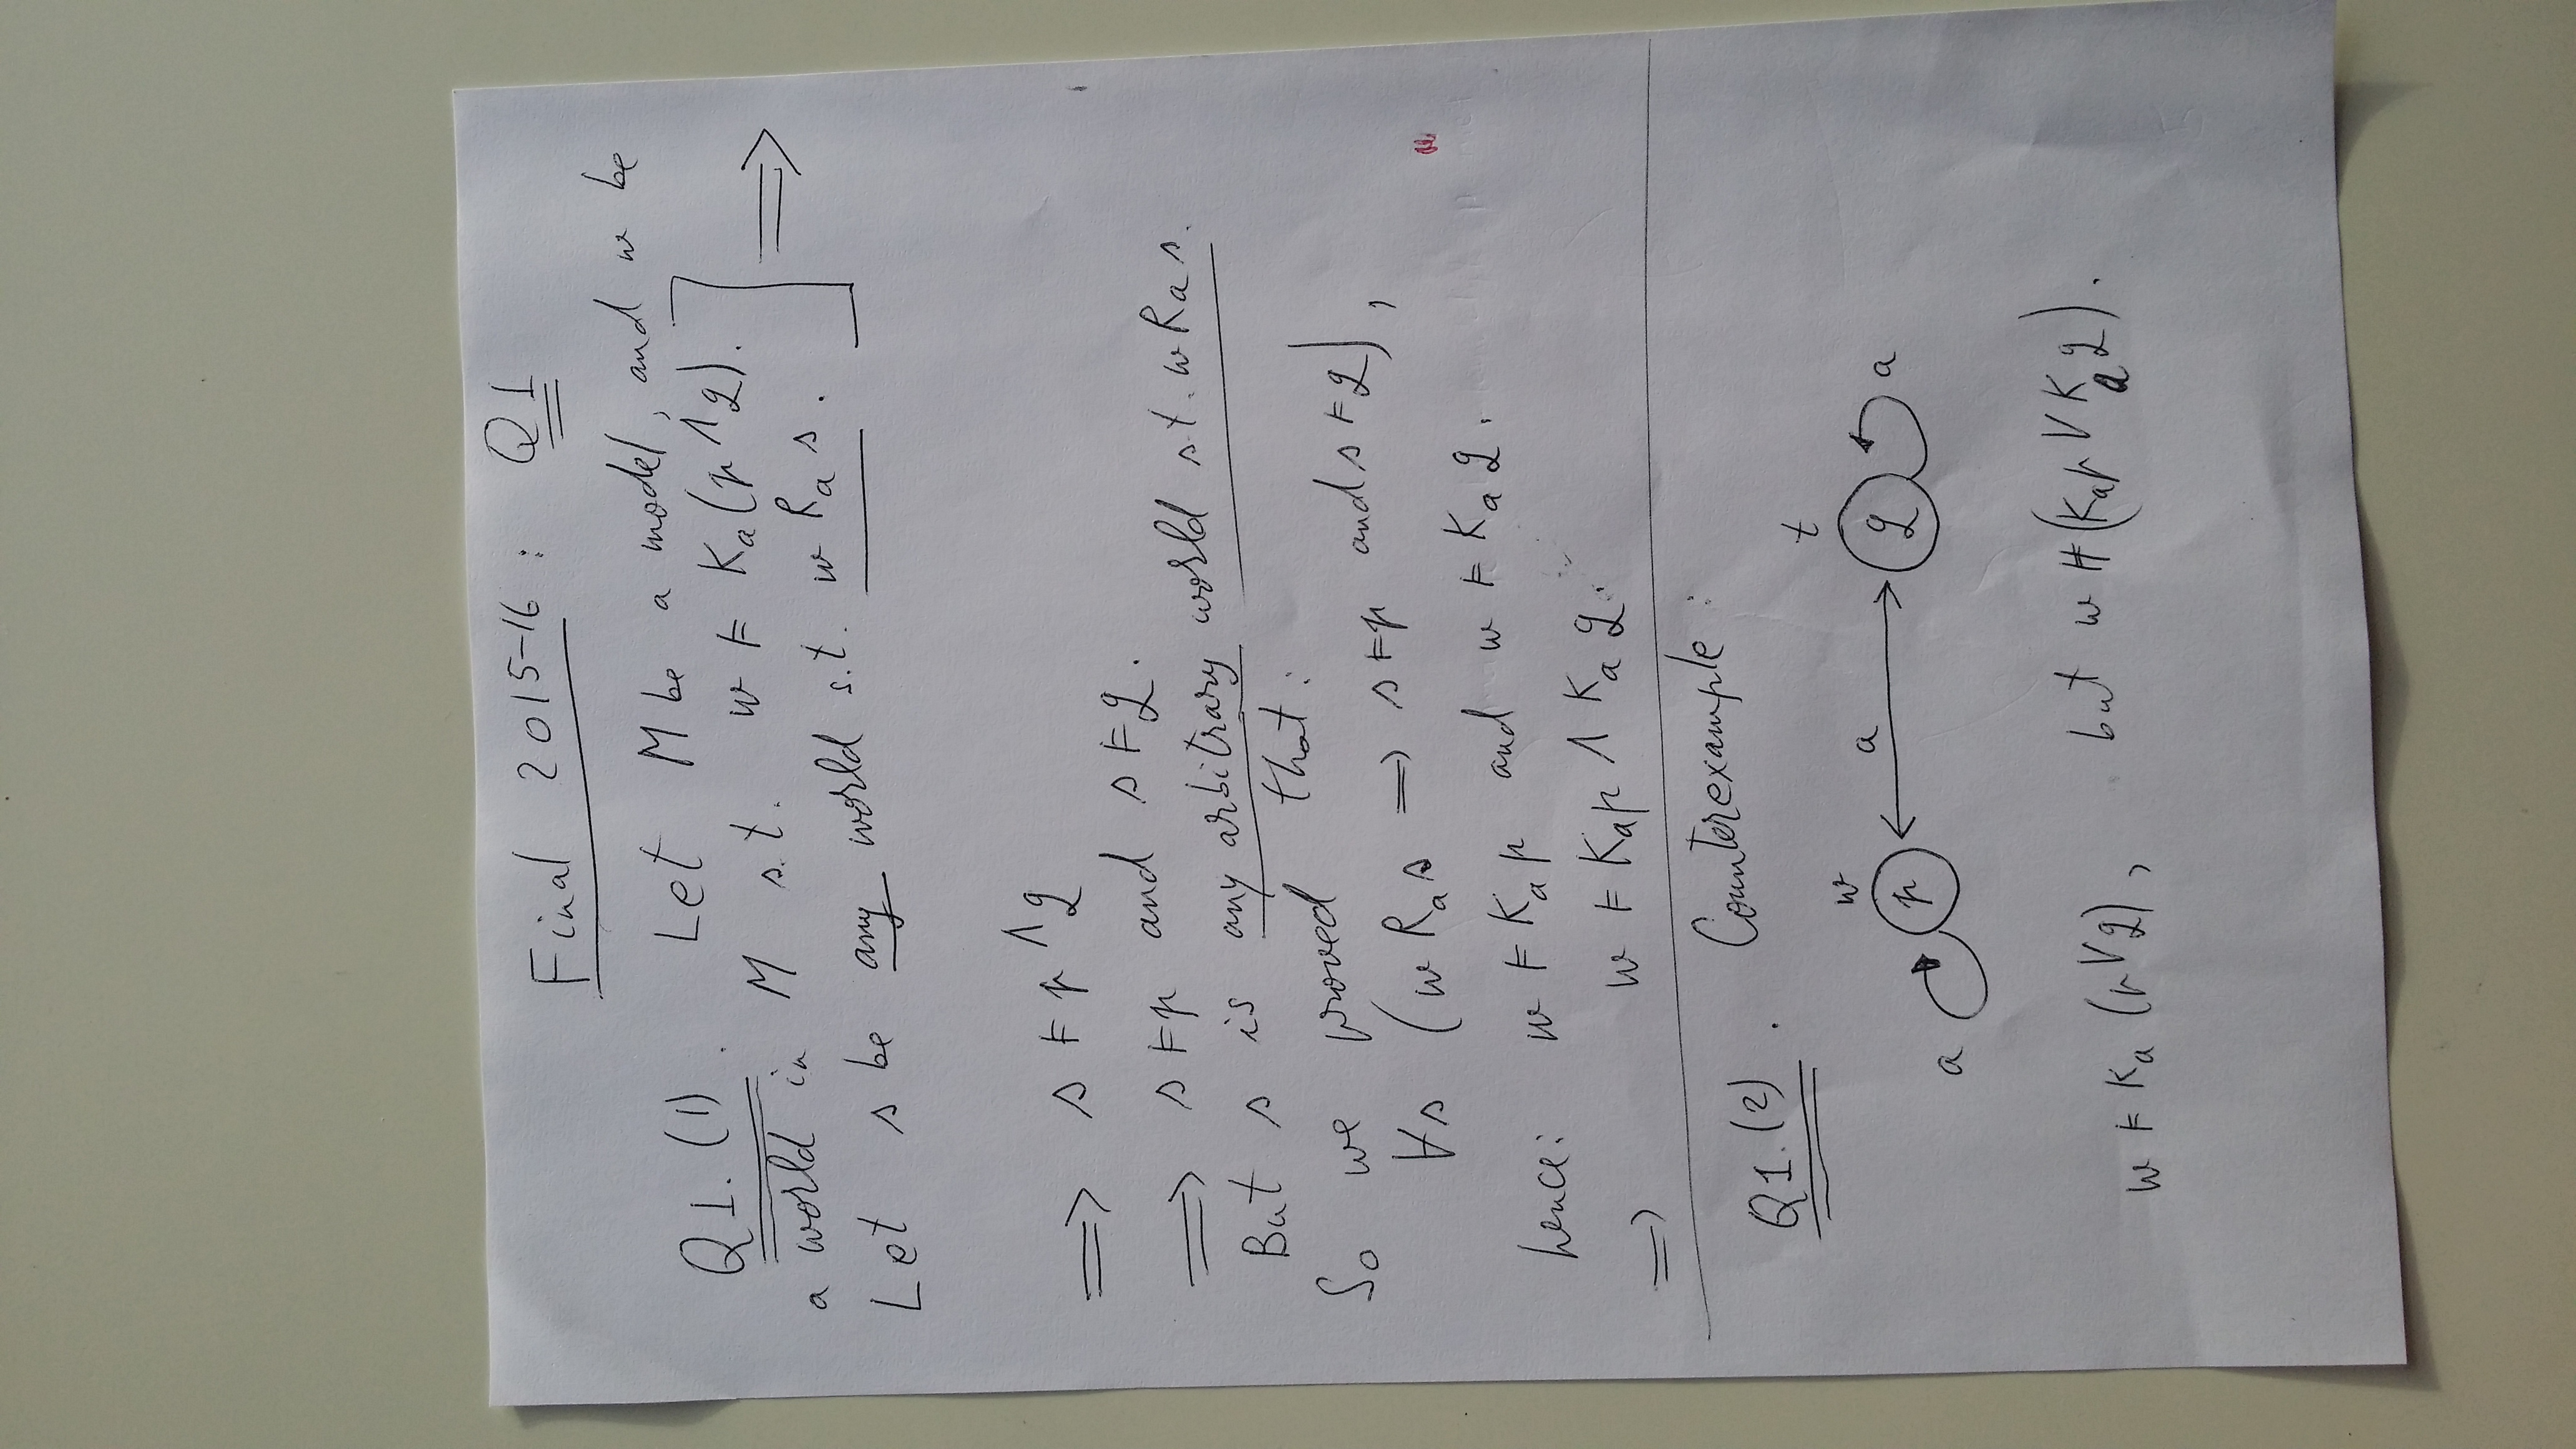 Final 2015-16 : Q1
Q1. (1). Let M be a model, and w be
a world in M s.t. w ⊨ Ka(p ∧ q).
Let s be any world s.t. w Ra s. ⟹
⟹ s ⊨ p ∧ q
⟹ s ⊨ p and s ⊨ q.
But s is any arbitrary world s.t. w Ra s.
So we proved that:
∀s (w Ra s ⟹ s ⊨ p and s ⊨ q),
hence: w ⊨ Ka p and w ⊨ Ka q.
⟹ w ⊨ Ka p ∧ Ka q.
Q1. (2). Counterexample:
w t
a p a q a
w ⊨ Ka (p ∨ q), but w ⊭ (Ka p ∨ Ka q).